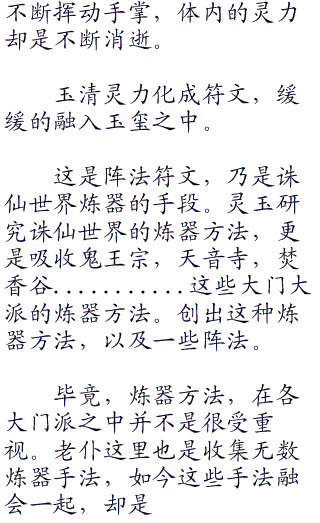 不断挥动手掌，体内的灵力
却是不断消逝。
玉清灵力化成符文，缓
缓的融入玉玺之中。
这是阵法符文，乃是诛
仙世界炼器的手段。灵玉研
究诛仙世界的炼器方法，更
是吸收鬼王宗，天音寺，焚
香谷...........这些大门大
派的炼器方法。创出这种炼
器方法，以及一些阵法。
毕竟，炼器方法，在各
大门派之中并不是很受重
视。老仆这里也是收集无数
炼器手法，如今这些手法融
会一起，却是